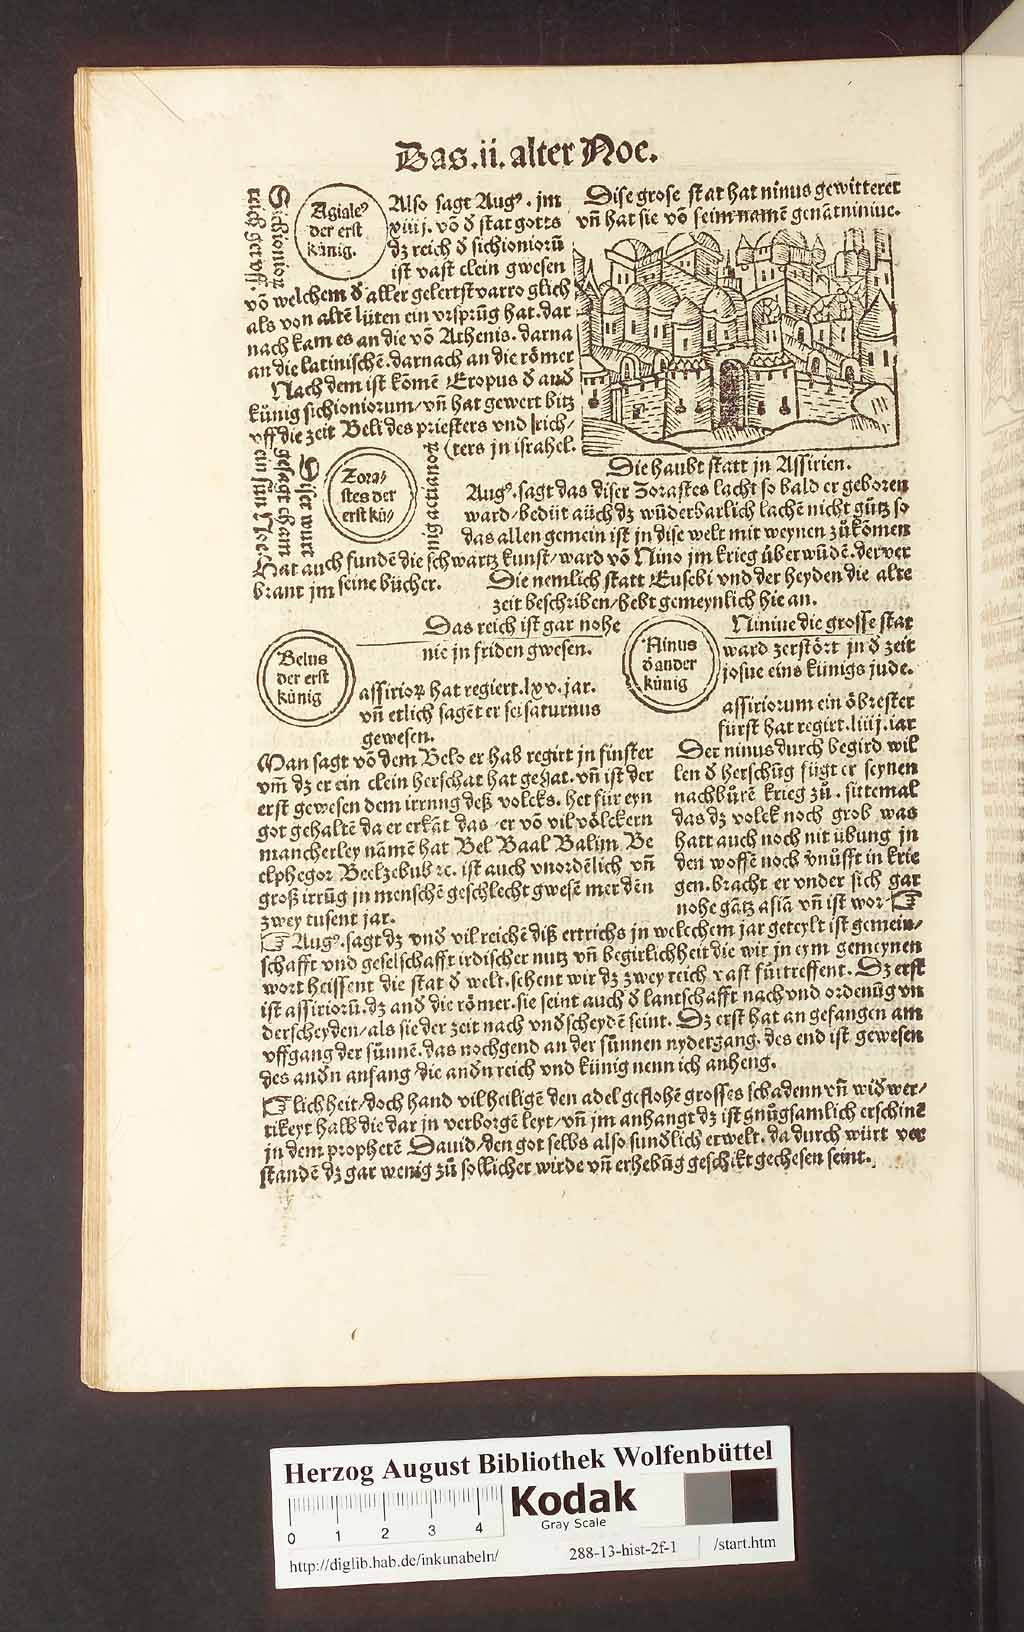 Das.ii.alter Noe.
Sichioniorꝝ
reich ger vff.
Agialeꝰ
der erst
künig.
Also sagt Augꝰ. jm
xviij. võ đ stat gotts
dz reich đ sichioniorũ
ist vast clein gwesen
võ welchem đ aller gelertst varro glich
als von altẽ lüten ein vrsprũg hat. dar
nach kam es an die võ Athenis. darna
an die latinischẽ. darnach an die römer
Nach dem ist kömẽ Eropus đ anđ
künig sichioniorum/ vñ hat gewert bitz
vff die zeit Beli des priesters vnd rich/
(ters jn israhel.
Dise grose stat hat ninus gewitteret
vñ hat sie võ seim namẽ genãt niniue.
Die haubt statt jn Assirien.
Diser wurt
gesagt cham
ein sun Noe.
Zora/
stes der
erst kü/
Augꝰ. sagt das diser Zorastes lacht so bald er geboren
ward/ bedüt aüch dz wũderbarlich lachẽ nicht gütz so
das allen gemein ist jn dise welt mit weynen zů kõmen
Hat auch fundẽ die schwartz kunst/ ward võ Nino jm krieg überwũdẽ. der ver
brant jm seine bücher.
Die nemlich statt Eusebi vnd der heyden die alte
zeit beschriben/ hebt gemeynlich hie an.
Das reich ist gar nohe
nie jn friden gwesen.
Belus
der erst
künig
assirioꝝ hat regiert. lxv. jar.
vñ etlich sagẽt er sei saturnus
gewesen.
Man sagt võ dem Belo er hab regirt jn finster
vm̃ dz er ein clein herschat hat gehat. vñ ist der
erst gewesen dem irrung deß volcks. het für eyn
got gehaltẽ da er erkãt das er võ vil völckern
mancherley nãmẽ hat Bel Baal Balim Be
elphegor Beelzebub ꝛc. ist auch vnordẽlich vñ
groß irrũg jn menschẽ geschlecht gwesẽ mer dẽn
zwey tusent jar.
Ninus
đ ander
künig
Niniue die grosse stat
ward zerstört jn đ zeit
josue eins künigs jude.
assiriorum ein öbrester
fürst hat regirt. liiij. iar
Der ninus durch begird wil
len đ herschũg fügt er seynen
nachbürẽ krieg zů. sittemal
das dz volck noch grob was
hatt auch noch nit übung jn
den woffẽ noch vnüfft in krie
gen. bracht er vnder sich gar
nohe gãtz asiã vñ ist wor ☞
☞ Augꝰ. sagt dz vnđ vil reichẽ diß ertrichs jn welechem jar geteylt ist gemein/
schafft vnd geselschafft irdischer nutz vñ begirlichheit die wir jn eym gemeynen
wort heissent die stat đ welt. sehent wir dz zwey reich vast fürtreffent. Dz erst
ist assiriorũ. dz anđ die römer. sie seint auch đ lantschafft nach vnd ordenũg vn
derscheyden/ als sie der zeit nach vnđscheydẽ seint. Dz erst hat an gefangen am
vffgang der sünnẽ. das nochgend an der sünnen nydergang. des end ist gewesen
des andn anfang/ die andn reich vnd künig nenn ich anheng.
☞ lichheit/ doch hand vil heiligẽ den adel geflohẽ grosses schadenn vñ widwer/
tikeyt halb die dar jn verborgẽ leyt/ vñ jm anhangt dz ist gnůgsamlich erschinẽ
jn dem prophetẽ Dauid/ den got selbs also sundlich erwelt. da durch würt ver
standẽ dz gar wenig zů sollicher wirde vñ erhebũg geschikt gechesen seint.
Herzog August Bibliothek Wolfenbüttel
0 1 2 3 4
Kodak
Gray Scale
http://diglib.hab.de/inkunabeln/
288-13-hist-2f-1
/start.htm